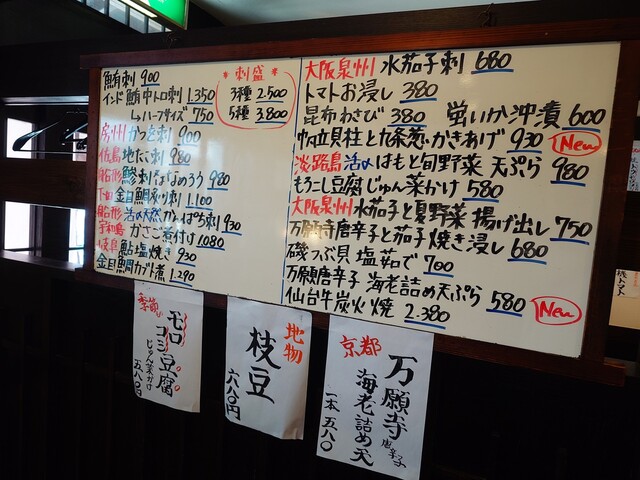 鮪有刺 900
インド鮪中トロ刺 1.350
↳ハーフサイズ 750
房州 かつを刺 900
佐島 地たこ刺 980
船形 鯵刺 なめろう 980
下田 金目鯛炙り刺 1.100
船形 活〆天然かんぱち刺 930
宇和島 かさご煮付け 1.080
岐阜 鮎塩焼き 930
金目鯛カブト煮 1.290
*刺盛*
3種 2.500
5種 3.800
大阪泉州 水茄子刺 680
トマトお浸し 380
昆布わさび 380 蛍いか沖漬 600
帆立貝柱と九条葱かきあげ 930 New
淡路島 活〆はもと旬野菜 天ぷら 980
もろこし豆腐じゅん菜がけ 580
大阪泉州 水茄子と夏野菜 揚げ出し 750
万願寺唐辛子と茄子焼き浸し 680
磯つぶ貝 塩茹で 700
万願唐辛子 海老詰め天ぷら 580 New
仙台牛炭火焼 2.380
季節の
モロコシ豆腐
じゅん菜がけ
五八〇円
地物
枝豆
六八〇円
京都
万願寺唐辛子
海老詰め天
一本 五八〇